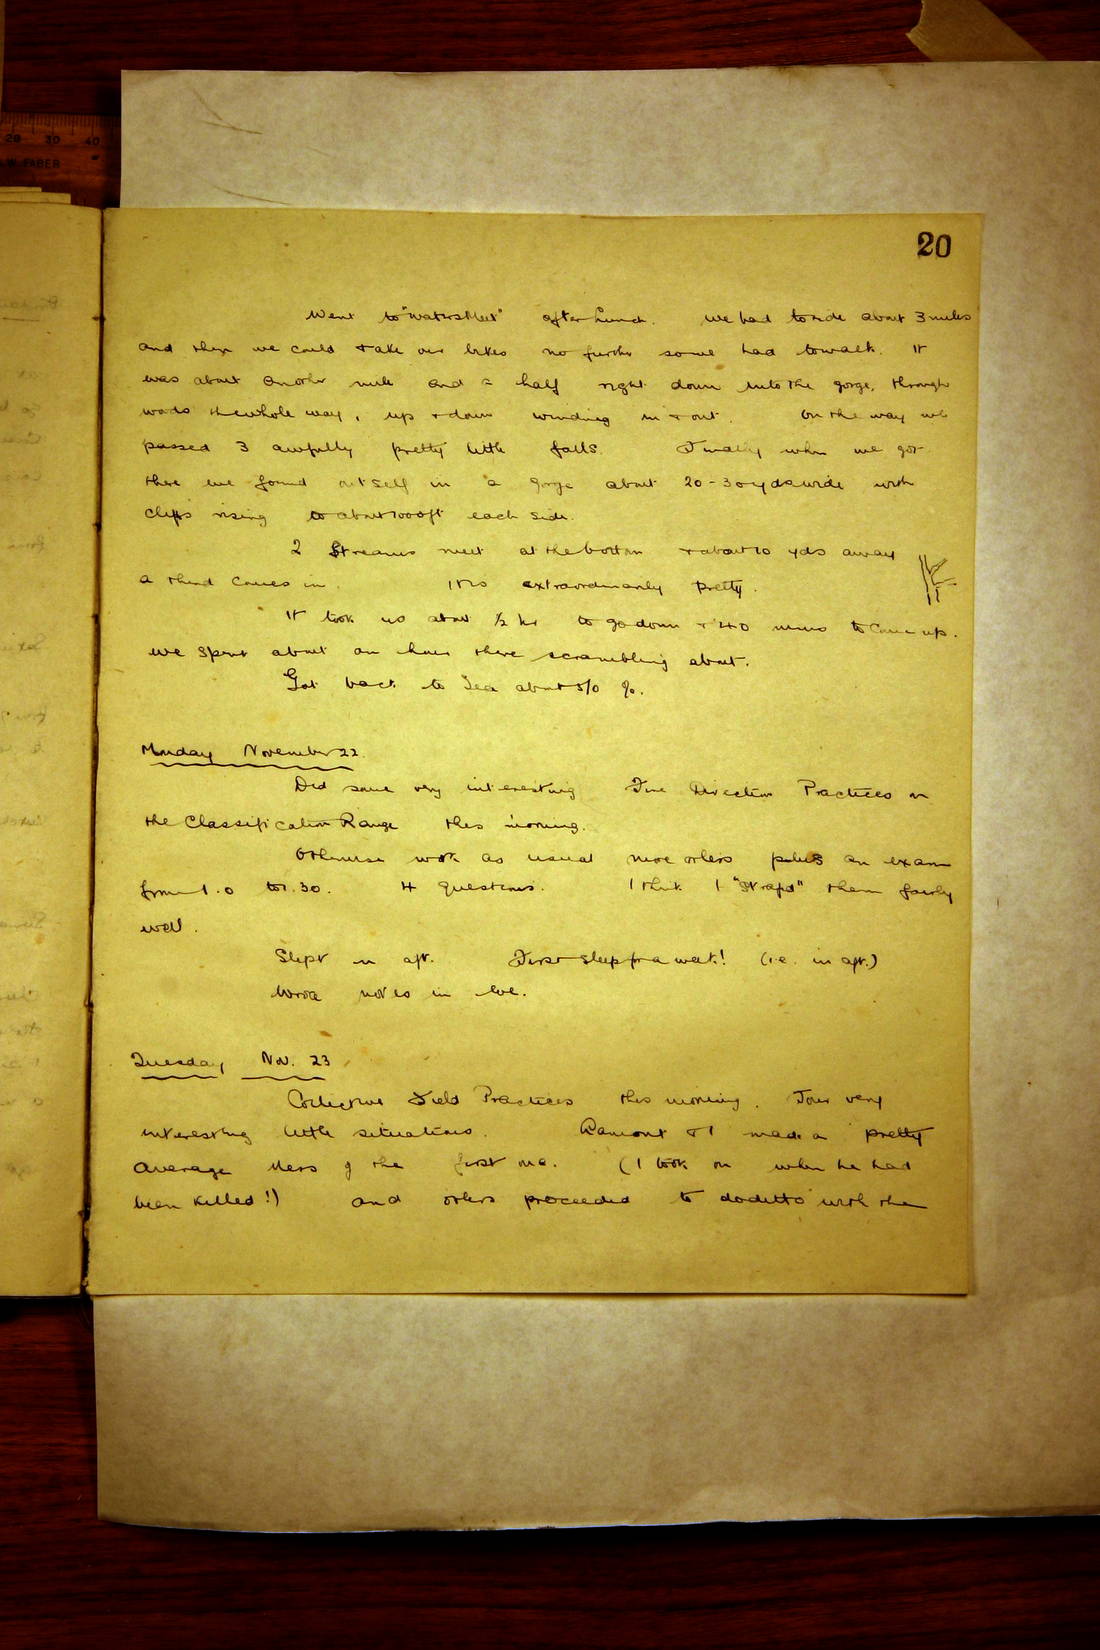 20
Went to "Watersmeet" after lunch. We had to ride about 3 miles
and then we could take our bikes no further so we had to walk. It
was about another mile and a half right down into the gorge, through
woods the whole way, up & down winding in & out. On the way we
passed 3 awfully pretty little falls. Finally when we got
there we found ourself in a gorge about 20-30 yds wide with
cliffs rising to about 1000ft each side.
2 Streams meet at the bottom & about 10 yds away
a third comes in. It is extraordinarily pretty.
It took us about ½ hr to go down & 40 mins to come up.
We spent about an hour there scrambling about.
Got back to Tea about 5/0
Monday November 22.
Did some very interesting Fire Direction Practices on
the Classification Range this morning.
Otherwise work as usual more orders plus an exam
from 1.0 to 1.30. 4 questions. I think I "strafed" them fairly
well.
Slept in aft. First sleep for a week! (i.e. in aft.)
Wrote notes in eve.
Tuesday, Nov. 23
Collective Field Practices this morning. Four very
interesting little situations. Ramont & I made a pretty
average mess of the first one. (I took on when he had
been killed!) and others proceeded to do ditto with the
20 30 40
W. FABER